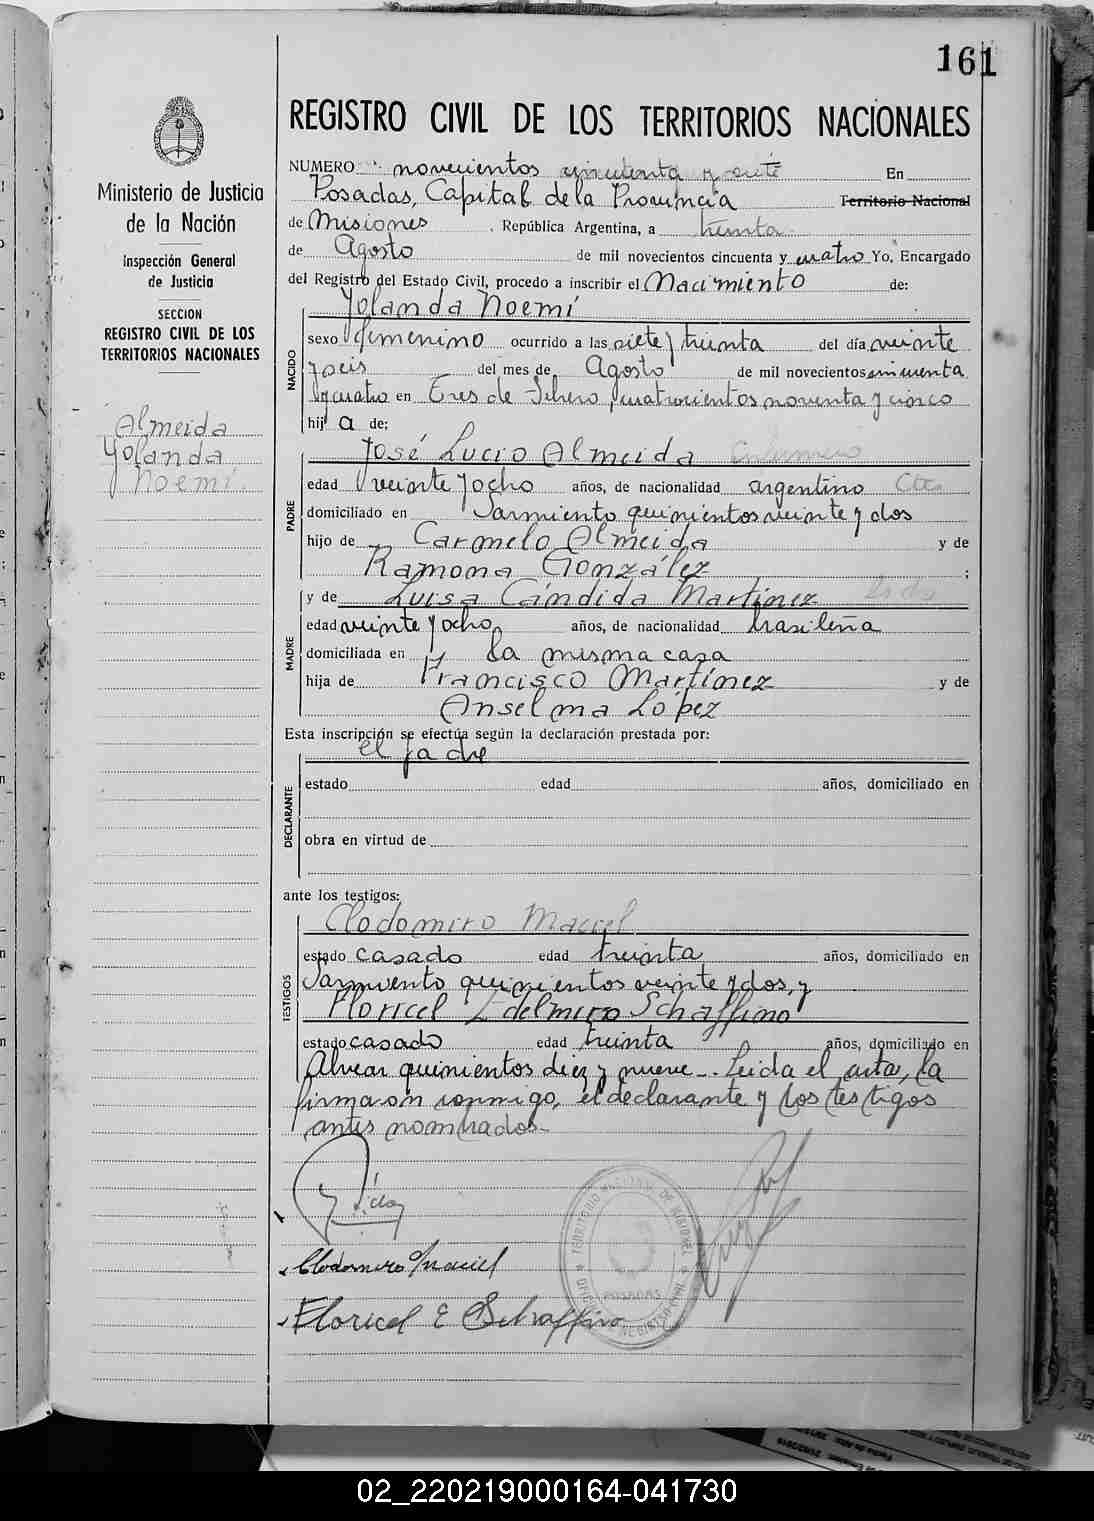 161
REGISTRO CIVIL DE LOS TERRITORIOS NACIONALES
Ministerio de Justicia
de la Nación
Inspección General
de Justicia
SECCION
REGISTRO CIVIL DE LOS
TERRITORIOS NACIONALES
Almeida
Yolanda
Noemí.
NUMERO novecientos cincuenta y siete En
Posadas, Capital de la Provincia Territorio Nacional
de Misiones, República Argentina, a treinta
de Agosto de mil novecientos cincuenta y cuatro Yo, Encargado
del Registro del Estado Civil, procedo a inscribir el Nacimiento de:
Yolanda Noemí
NACIDO
sexo femenino ocurrido a las siete y treinta del día veinte
y seis del mes de Agosto de mil novecientos cincuenta
y cuatro en Tres de Febrero, cuatrocientos noventa y cinco
hij a de:
José Lucio Almeida
PADRE
edad veinte y ocho años, de nacionalidad argentino
domiciliado en Sarmiento quinientos veinte y dos
hijo de Carmelo Almeida y de
Ramona González ;
y de Luisa Cándida Martínez
MADRE
edad veinte y ocho años, de nacionalidad brasileña
domiciliada en la misma casa
hija de Francisco Martínez y de
Anselma López
Esta inscripción se efectúa según la declaración prestada por:
el padre
DECLARANTE
estado edad años, domiciliado en
obra en virtud de
ante los testigos:
Clodomiro Maciel
TESTIGOS
estado casado edad treinta años, domiciliado en
Sarmiento quinientos veinte y dos, y
Floricel Edelmiro Schaffino
estado casado edad treinta años, domiciliado en
Alvear quinientos diez y nueve. Leida el acta, la
firmaron conmigo, el declarante y los testigos
antes nombrados.
Clodomiro Maciel
Floricel E Schaffino
POSADAS
02_220219000164-041730